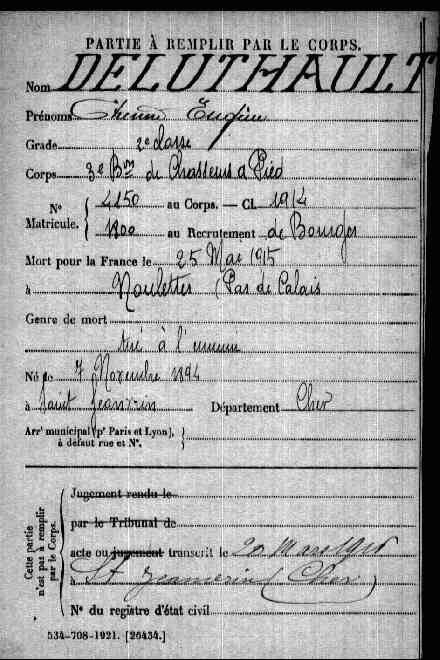 PARTIE À REMPLIR PAR LE CORPS.
Nom DELUTHAULT
Prénoms Eugène
Grade 2e classe
Corps 3e Bon de Chasseurs à Pied
N° Matricule. { 4150 au Corps. — Cl. 1914
1300 au Recrutement de Bourges
Mort pour la France le 25 Mai 1915
à Noulettes (Pas de Calais
Genre de mort
tué à l'ennemi
Né le 7 Novembre 1894
à Saint Jeanvrin Département Cher
Arr' municipal (p' Paris et Lyon),
à défaut rue et N°.
Cette partie n'est pas à remplir par le Corps.
Jugement rendu le
par le Tribunal de
acte ou jugement transcrit le 20 Mars 1916
à St Jeanvrin (Cher)
N° du registre d'état civil
534-708-1921. [26434.]